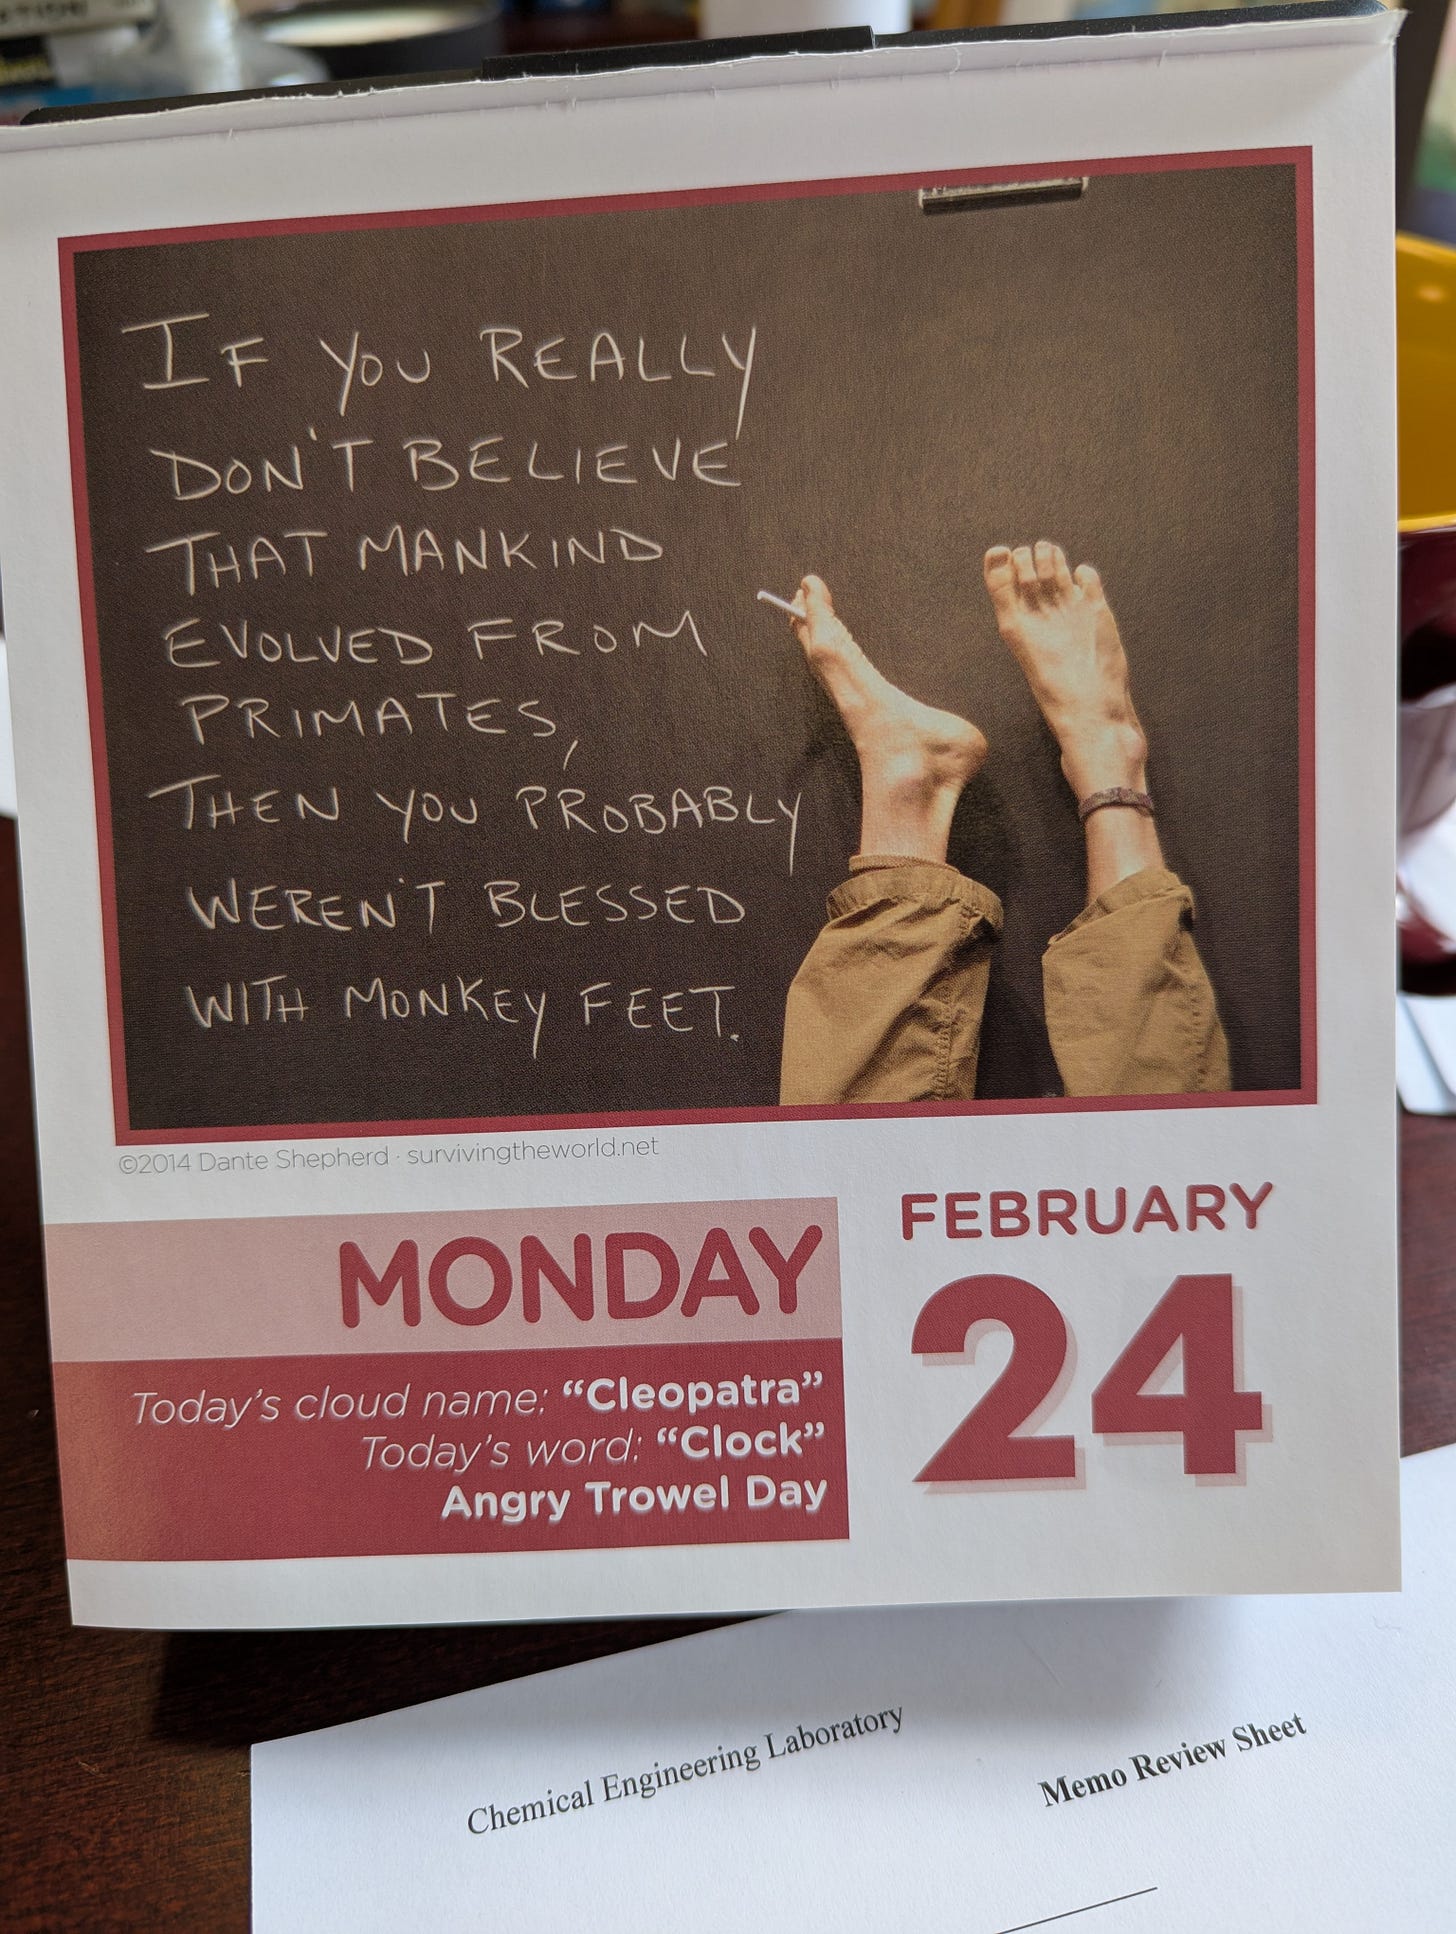 IF YOU REALLY
DON'T BELIEVE
THAT MANKIND
EVOLVED FROM
PRIMATES,
THEN YOU PROBABLY
WEREN'T BLESSED
WITH MONKEY FEET.
©2014 Dante Shepherd · survivingtheworld.net
MONDAY
FEBRUARY
24
Today's cloud name: “Cleopatra”
Today's word: “Clock”
Angry Trowel Day
Chemical Engineering Laboratory
Memo Review Sheet